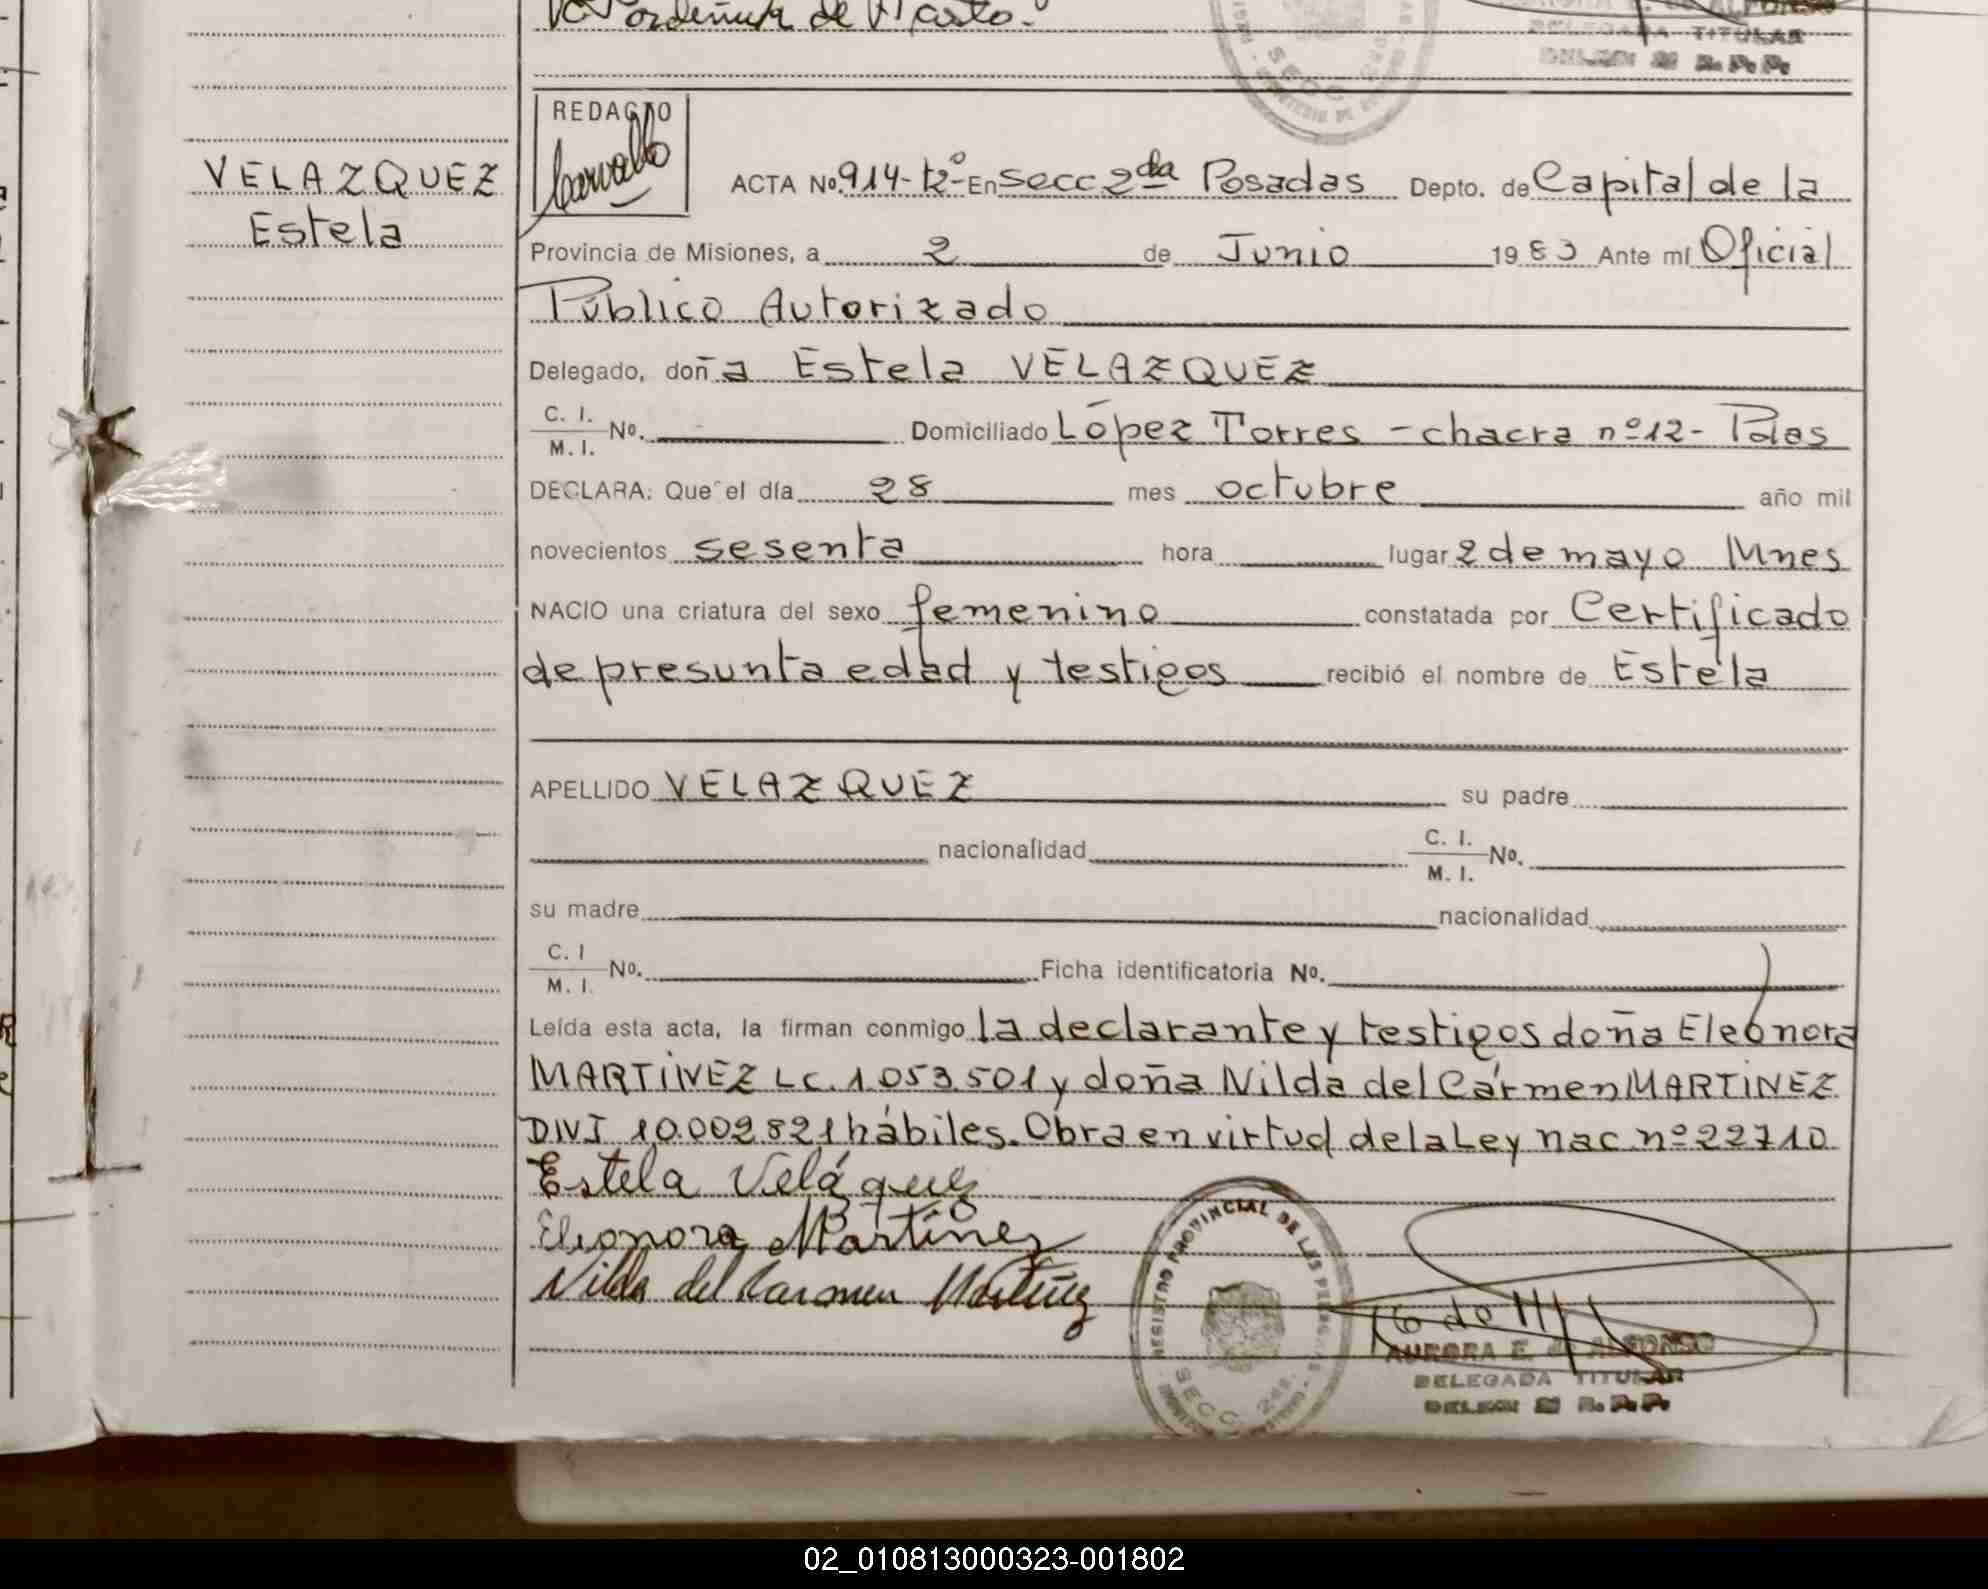 ordeñuta de Parto.
DELEGADA TITULAR
R. P. P.
VELAZQUEZ
Estela
REDACTO
Carvallo
ACTA No. 914-tº2- En Secc 2da Posadas Depto. de Capital de la
Provincia de Misiones, a 2 de Junio 1983 Ante mí Oficial
Público Autorizado
Delegado, doña Estela VELAZQUEZ
C. I.
M. I. No. Domiciliado López Torres - chacra nº12- Pdas
DECLARA: Que el día 28 mes octubre año mil
novecientos sesenta hora lugar 2 de mayo Mnes
NACIO una criatura del sexo femenino constatada por Certificado
de presunta edad y testigos recibió el nombre de Estela
APELLIDO VELAZQUEZ su padre
nacionalidad C. I.
M. I. No.
su madre nacionalidad
C. I
M. I. No. Ficha identificatoria No.
Leída esta acta, la firman conmigo la declarante y testigos doña Eleonora
MARTÍNEZ LC. 1.053.501 y doña Nilda del Cármen MARTINEZ
DNI 10.002.821 hábiles. Obra en virtud de la Ley nac. nº 22710
Estela Velázquez
Eleonora Martínez
Nilda del Carmen Martínez
REGISTRO PROVINCIAL DE LAS PERSONAS
SECC. 2da.
AURORA E. de ALFONSO
DELEGADA TITULAR
R. P. P.
02_010813000323-001802